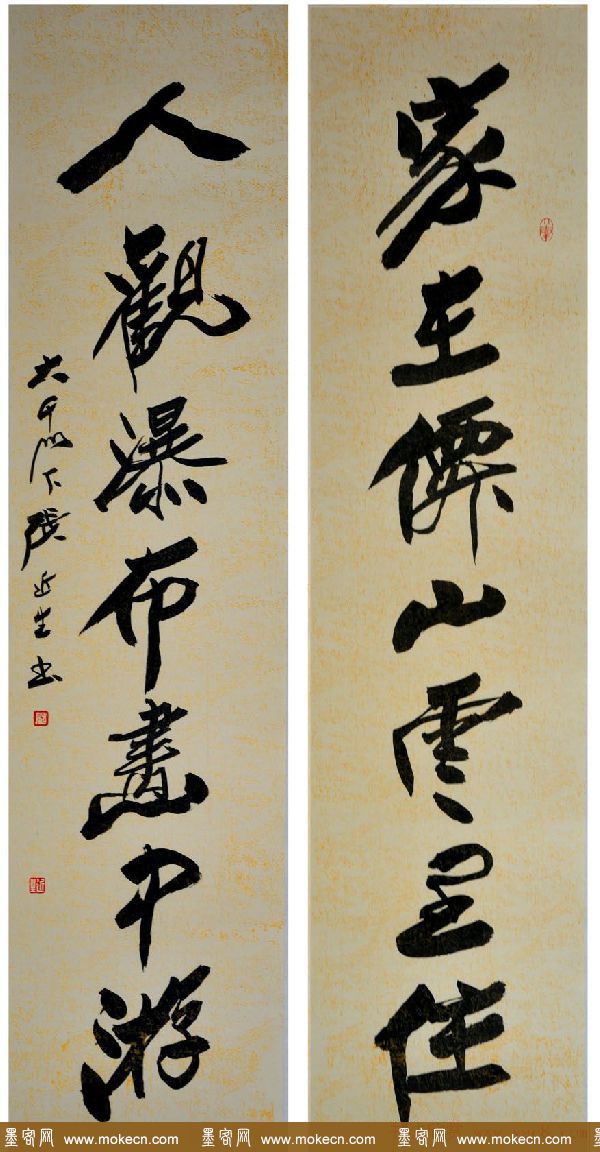 家在僊山雲里住
人觀瀑布畫中游
大千門下張近生書
墨客网 www.mokecn.com 墨客网 www.mokecn.com 墨客网 www.mokecn.com